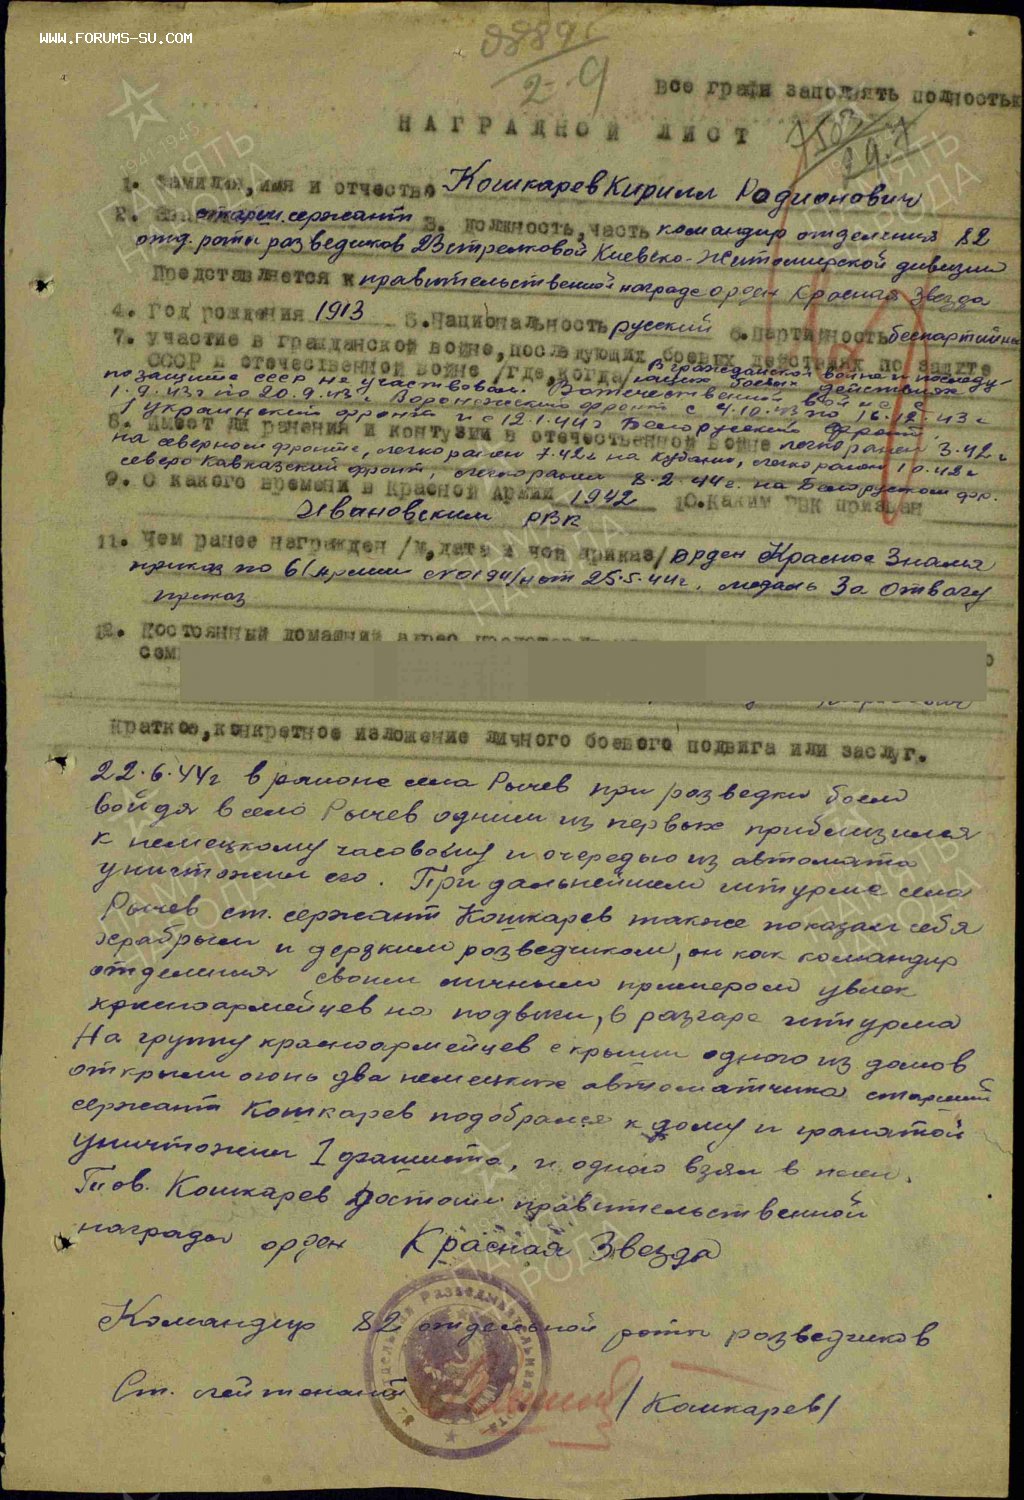 WWW.FORUMS-SU.COM
2-9
все графи заполнять полностью
НАГРАДНОЙ ЛИСТ
1. Фамилия, имя и отчество Кошкарев Кирилл Родионович
2. старш. сержант 3. должность, часть командир отделения 82
отд. роты разведчиков 23 стрелковой Киевско-Житомирской дивизии
Представляется к правительственной награде орден Красная Звезда
4. Год рождения 1913 5. Национальность русский 6. Партийность беспартийный
7. участие в гражданской войне, последующих боевых действиях по защите
СССР и отечественной войне /где, когда/ В гражданской войне и последу-
ющих боевых действиях
по защите СССР не участвовал. В отечественной войне с
1.9.43г по 20.9.43г Воронежский фронт с 4.10.43 по 16.12.43г
1 украинский фронт и с 12.1.44г Белорусский фронт.
8. Имеет ли ранения и контузии в отечественной войне легко ранен 3.42г
на северном фронте, легко ранен 7.42г на Кубани, легко ранен 10.42г
северо Кавказский фронт, легко ранен 8.2.44г. на Белорусском фр.
9. С какого времени в Красной Армии 1942 10. Каким РВК призван
Ивановским РВК
11. Чем ранее награжден /№, дата и чей приказ/ Орден Красное Знамя
приказ по 61 армии №0194/н от 25.5.44г, медаль За Отвагу
приказ
12. Постоянный домашний адрес
сем
Краткое, конкретное изложение личного боевого подвига или заслуг.
22.6.44г в районе села Рычев при разведки боем
войдя в село Рычев одним из первых приблизился
к немецкому часовому и очередью из автомата
уништожил его. При дальнейшем штурме села
Рычев ст. сержант Кошкарев также показал себя
храбрым и дерзким разведчиком, он как командир
отделения своим личным примером увлек
красноармейцев на подвиги, в разгаре штурма
На группу красноармейцев с крыши одного из домов
открыли огонь два немецких автоматчика старший
сержант Кошкарев подобрался к дому и гранатой
уничтожил 1 фашиста, и одного взял в плен.
Тов. Кошкарев достоин правительственной
награды орден Красная Звезда
Командир 82 отдельной роты разведчиков
Ст. лейтенант /Кошкарев/